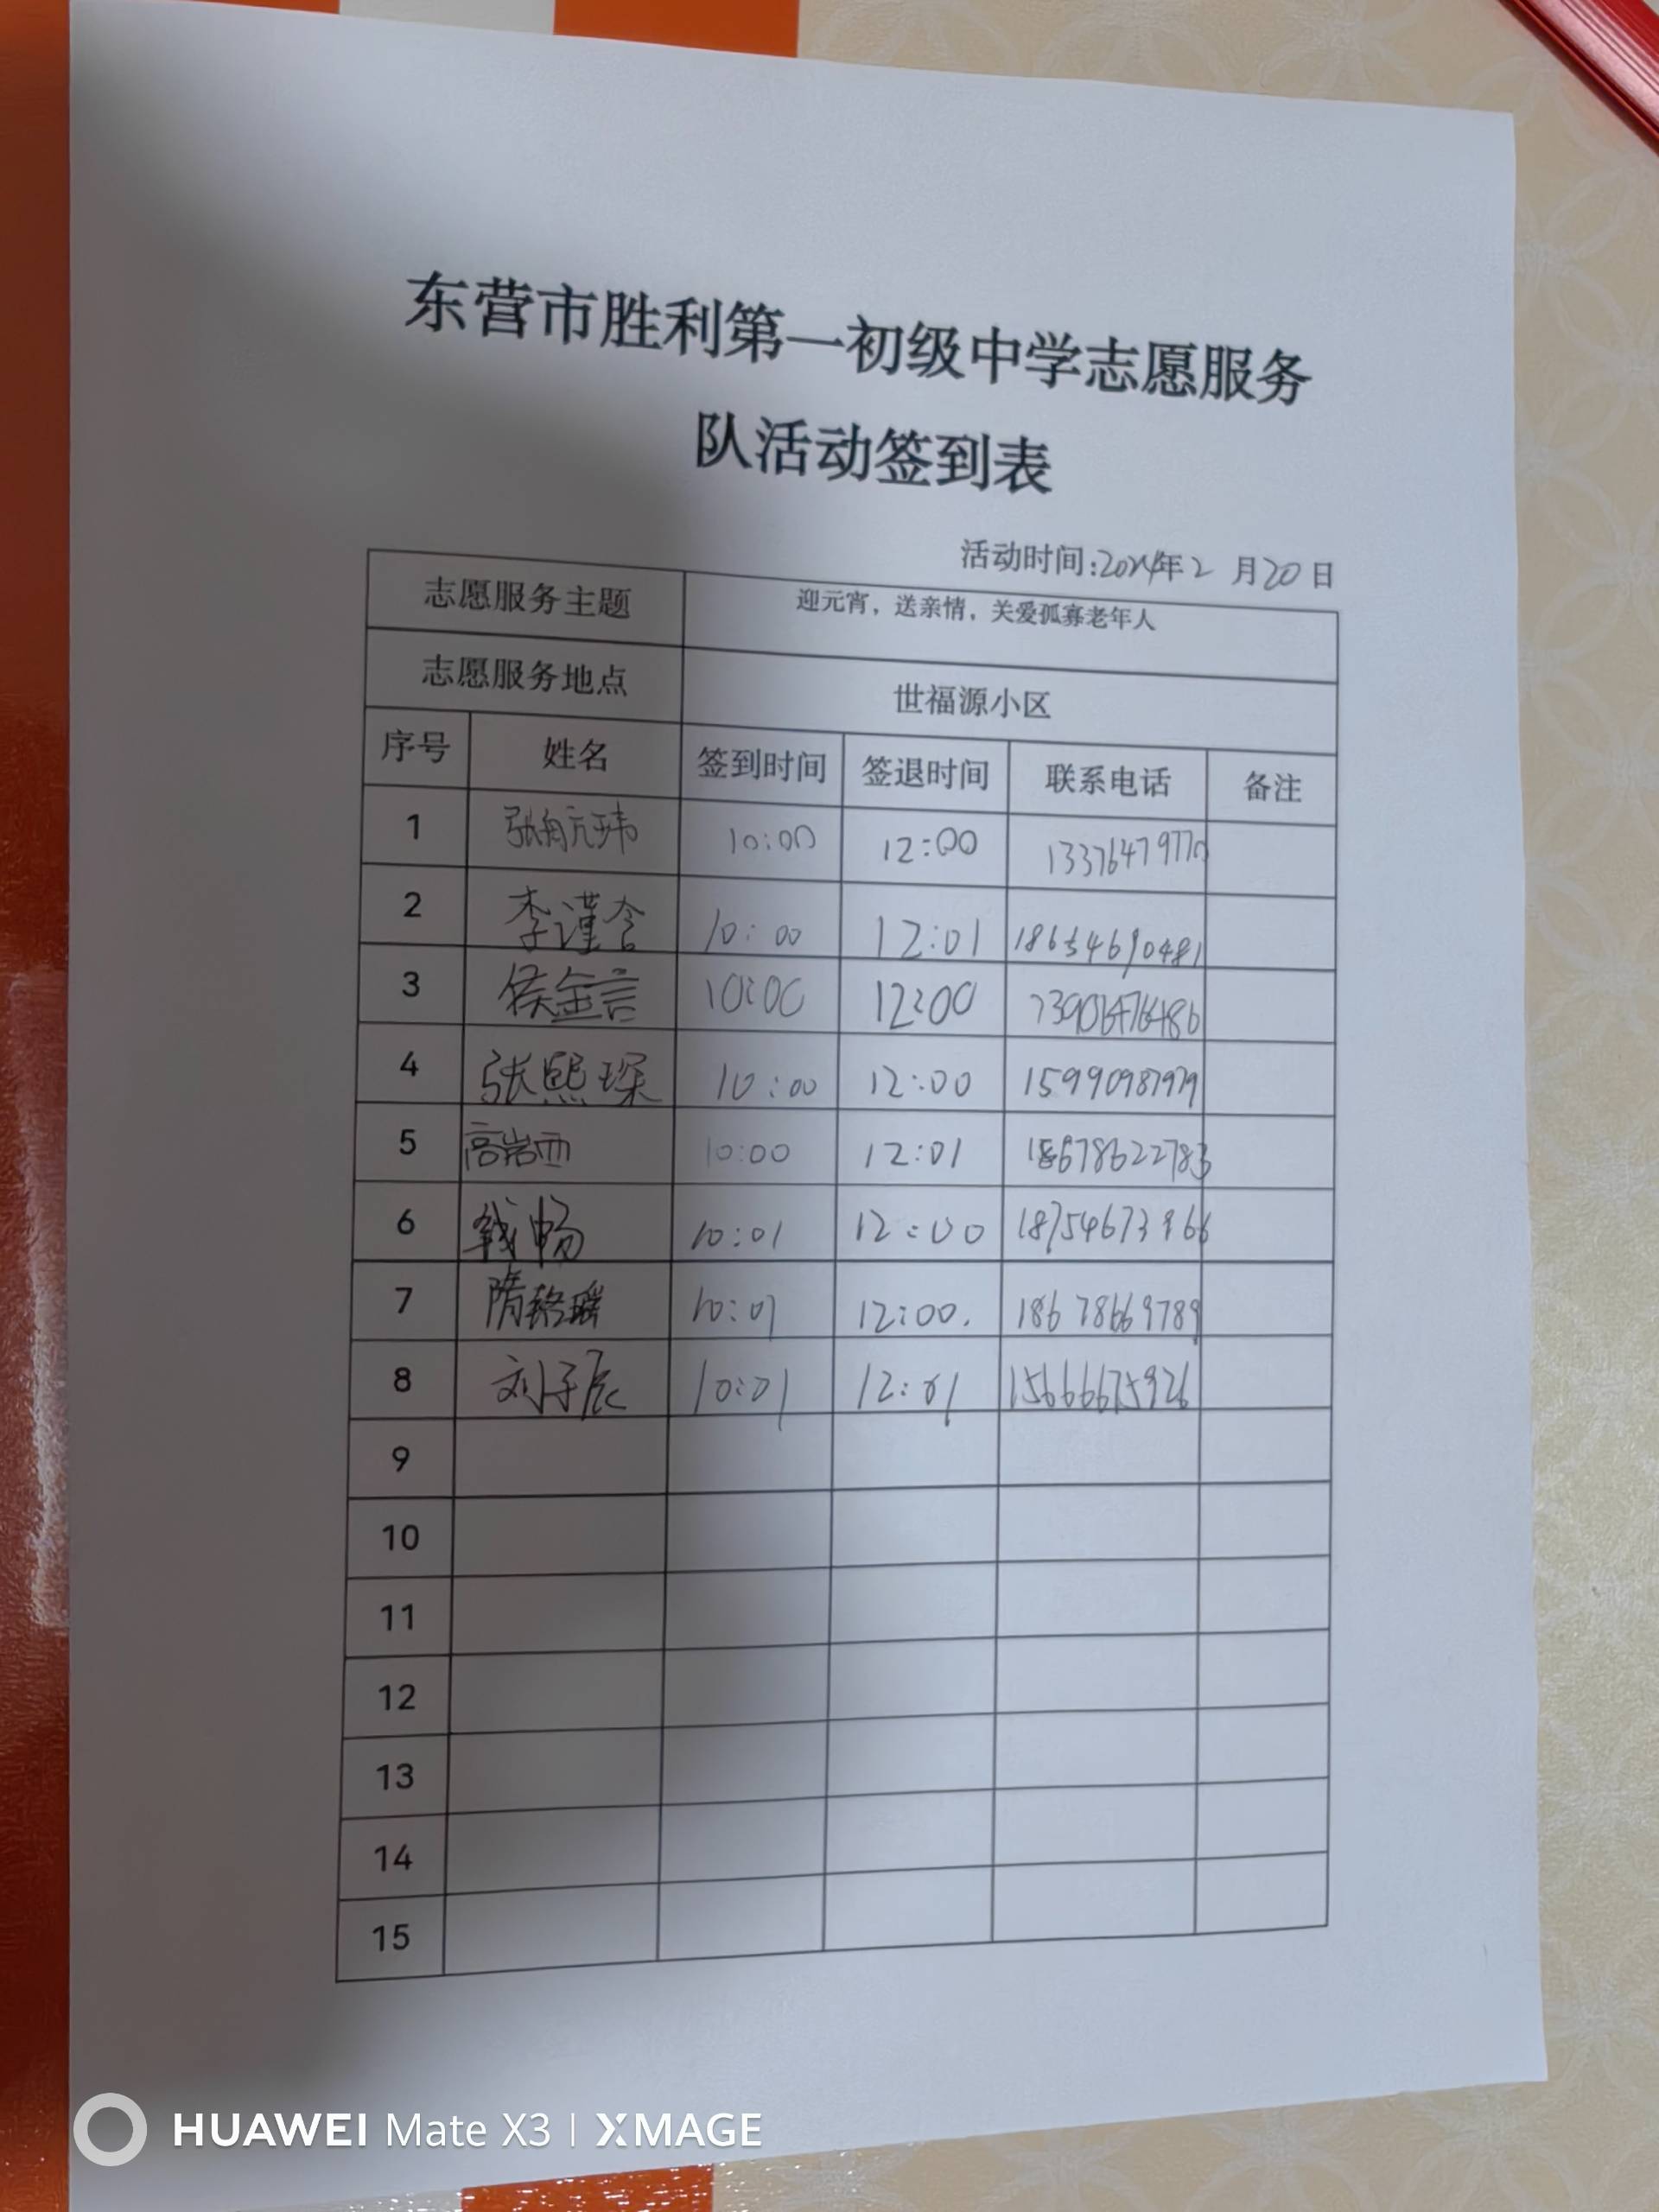 东营市胜利第一初级中学志愿服务
队活动签到表
活动时间:2024年2 月20日
志愿服务主题 迎元宵，送亲情，关爱孤寡老年人
志愿服务地点 世福源小区
序号 姓名 签到时间 签退时间 联系电话 备注
1 10:00 12:00 13376479770
2 李谨含 10:00 12:01 18654690481
3 侯金言 10:00 12:00
4 张熙琛 10:00 12:00 15990987979
5 高岩西 10:00 12:01 18678622783
6 钱畅 10:01 12:00
7 10:01 12:00. 18678669789
8 刘子辰 10:01 12:01 15666675926
9
10
11
12
13
14
15
HUAWEI Mate X3 | XMAGE